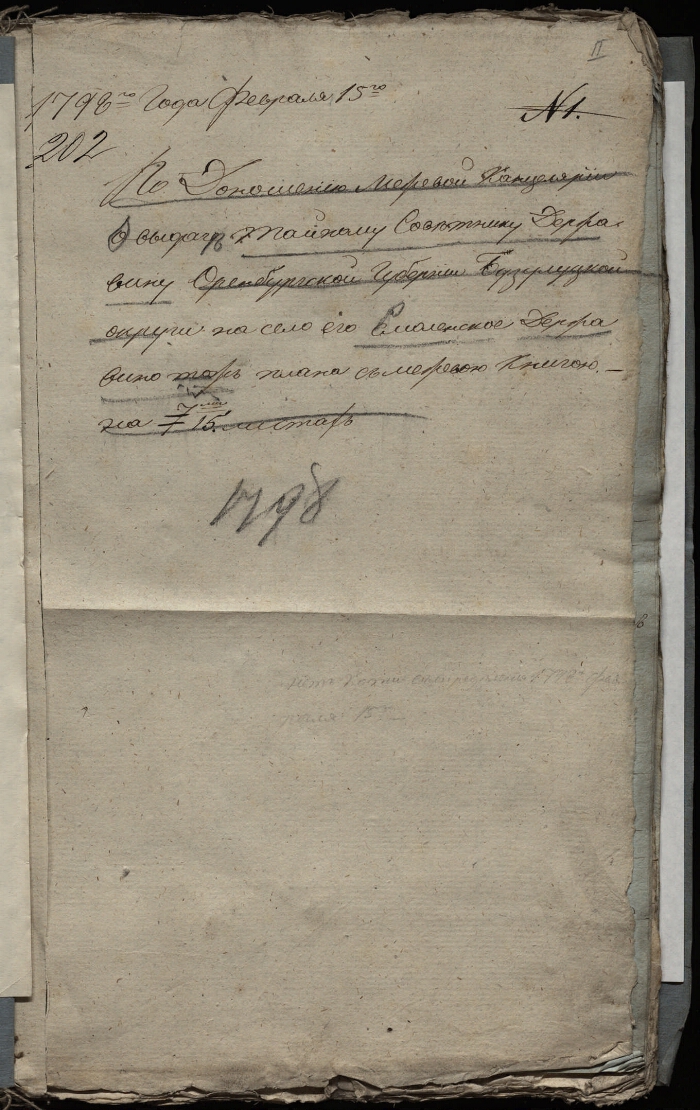 II
1798го Года Февраля 15го
N 1.
202
По Доношению Межевой Канцелярии
О выдаче тайному Советнику Держа
вину Оренбургской Губернии Бузулуцкой
округи на село его Смоленское Держа
вино тож плана съ межевою Книгою. —
на 7 листах
1798
1798 фев
раля 15го